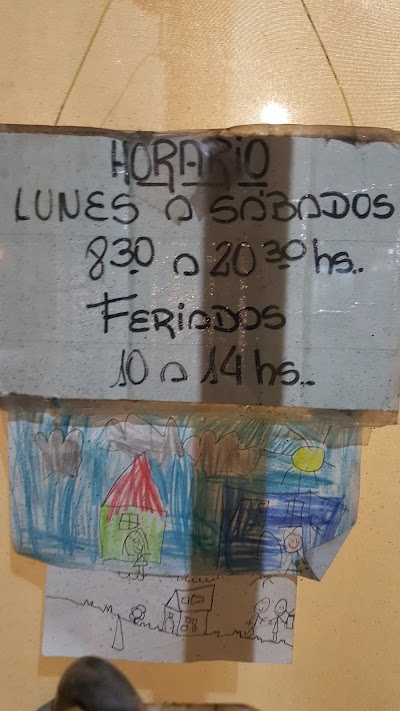 HORARIO
LUNES A SÁBADOS
8:30 A 20:30 hs..
FERIADOS
10 A 14 hs..